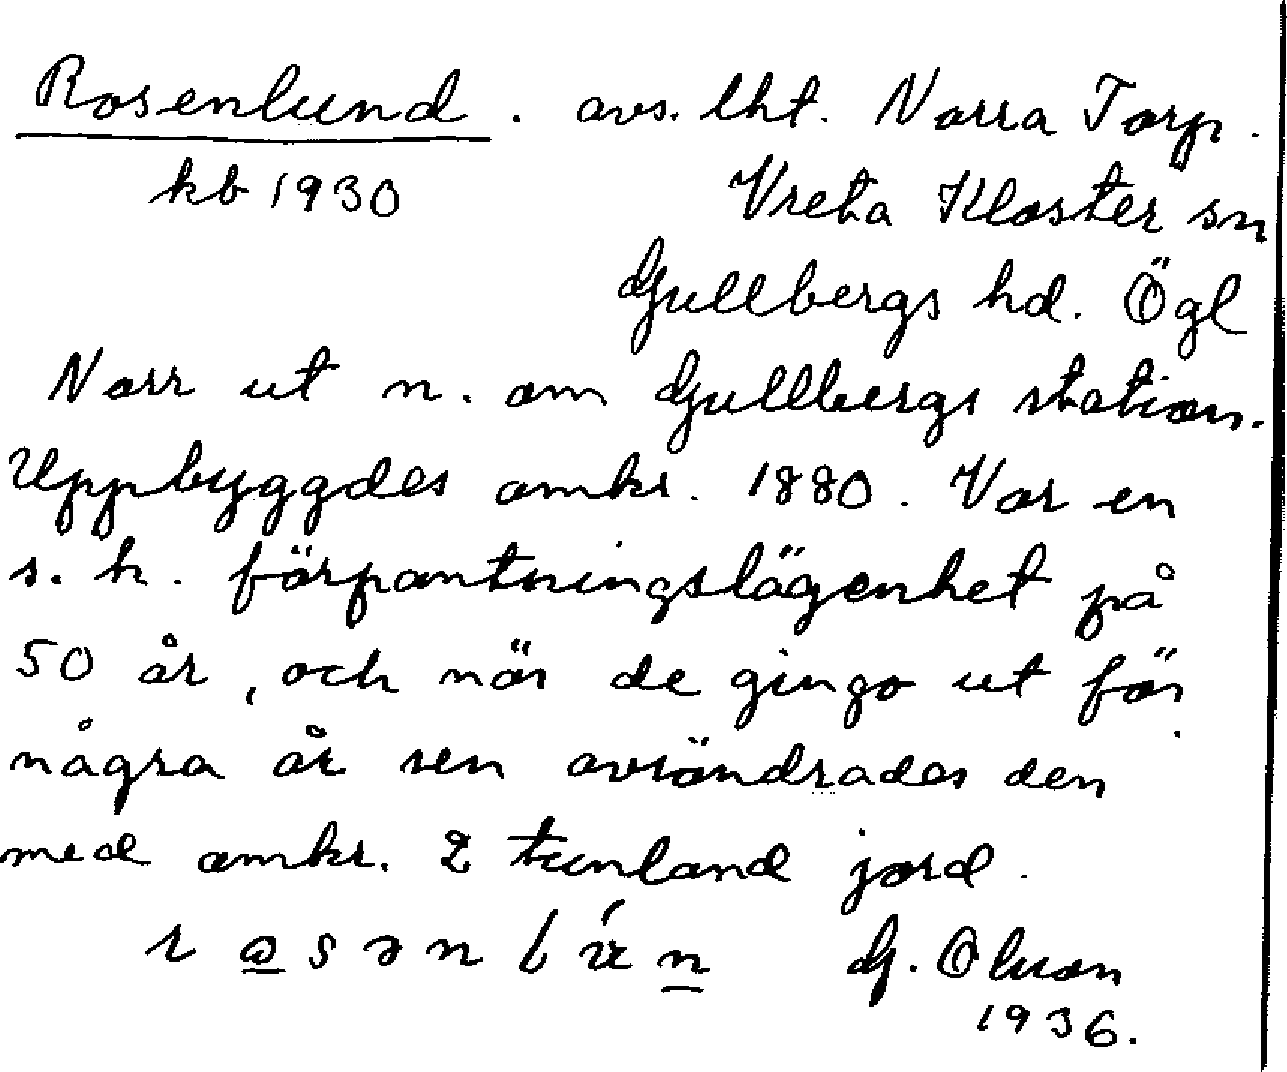 Rosenlund. avs. lht. Norra Torp.
kb 1930 Vreta Kloster sn
Gullbergs hd. Ögl
Norr ut n. om Gullbergs station.
Uppbyggdes omkr. 1880. Var en
s. k. förpantningslägenhet på
50 år, och när de gingo ut för
några år sen avsöndrades den
med omkr. 2 tunland jord.
G. Olsson
1936.